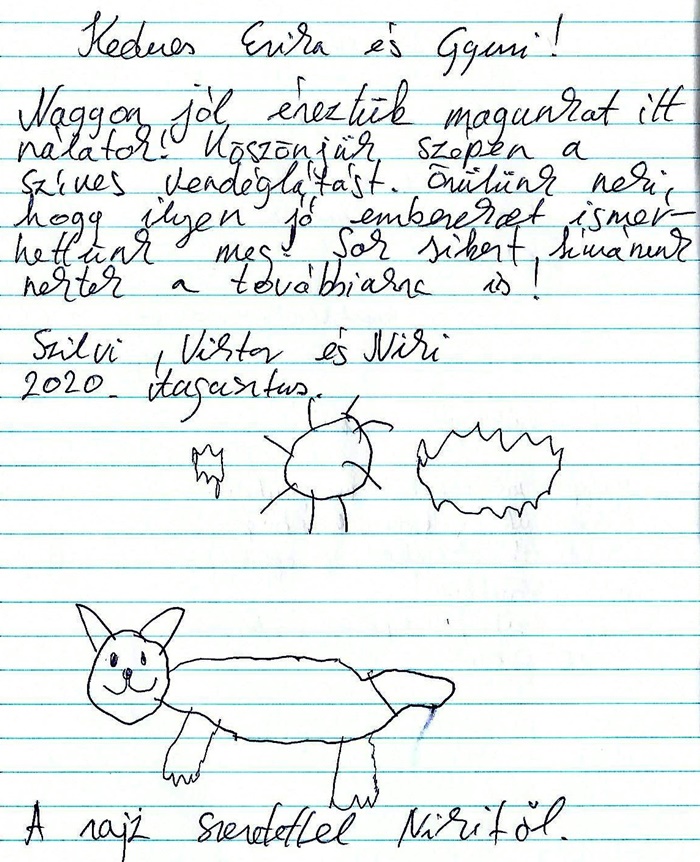 Kedves Erika és Gyuri!
Naggyon jól éreztük magunkat itt
nálatok! Köszönjük szépen a
szíves vendéglátást. Örülünk neki,
hogy ilyen jó embereket ismer-
hettünk meg! Sok sikert, kívánunk
nektek a továbbiakra is!
Szilvi, Viktor és Niki
2020. Augusztus.
A rajz szeretettel Nikitől.